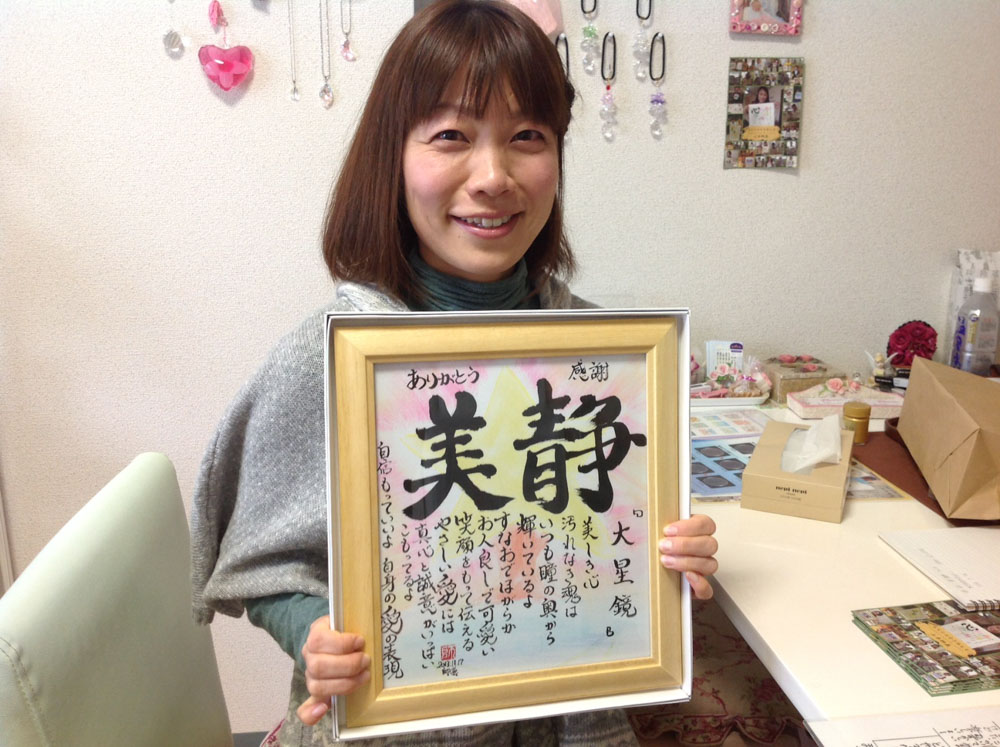 感謝
ありがとう
静美
「大星鏡」
美しき心
汚れなき魂は
いつも瞳の奥から
輝いているよ
すなおでほがらか
お人良しで可愛い
笑顔をもって伝える
やさしい愛には
真心と誠意がいっぱい
こもってるよ
自信もっていいよ 自身の愛の表現
nepi nepi